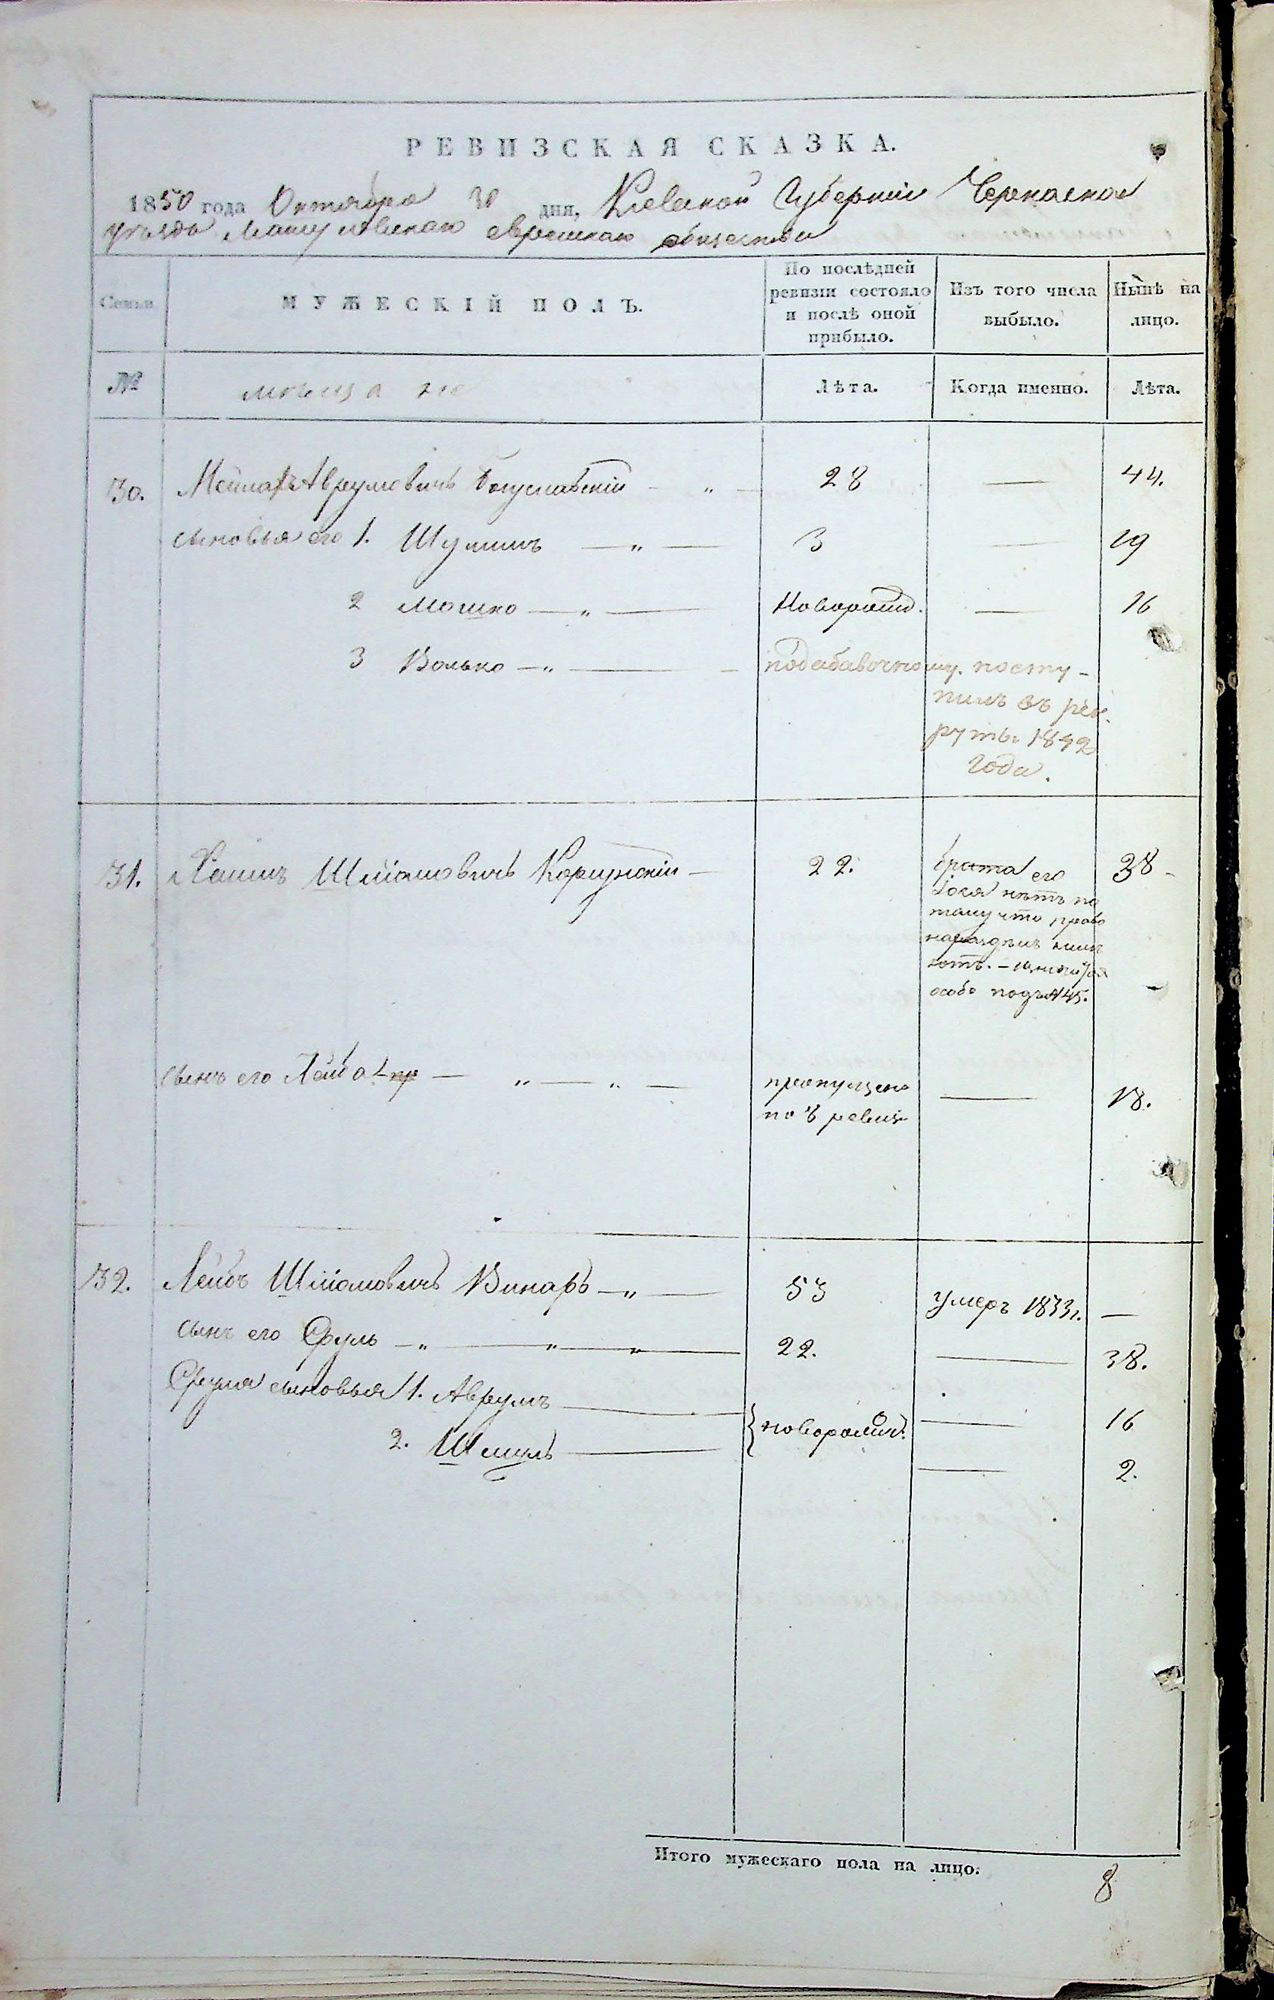 РЕВИЗСКАЯ СКАЗКА.
1850 года Октября 30 дня, Кіевской Губерніи Черкаскаго
уѣзда еврейскаго общества
Семьи. МУЖЕСКІЙ ПОЛЪ. По послѣдней ревизіи состояло и послѣ оной прибыло. Изъ того числа выбыло. Нынѣ на лицо.
№ Лѣта. Когда именно. Лѣта.
30. Аврумовичъ Богуславскій — „ — 28 — 44.
сыновья его 1. Шулимъ — „ — 3 — 19
2 Мошко — „ — Новорожд. — 16
3 Волько — „ — посту-
пилъ въ рек-
руты 1842
года.
31. Хаимъ Шліомовичъ Корсунскій — 22. брата его 38 -
нѣтъ по
тому что
особо подъ №45. -
сынъ его Лейба — „ — „ — пропущено — 18.
по 8 ревиз
32. Лейбъ Шліомовичъ Винаръ — „ — 53 умеръ 1833г. —
сынъ его Сруль — „ — „ — „ — 22. — 38.
Сруля сыновья 1. Аврумъ — { новорожд. — 16
2. Шмуль — — 2.
Итого мужескаго пола на лицо. 8